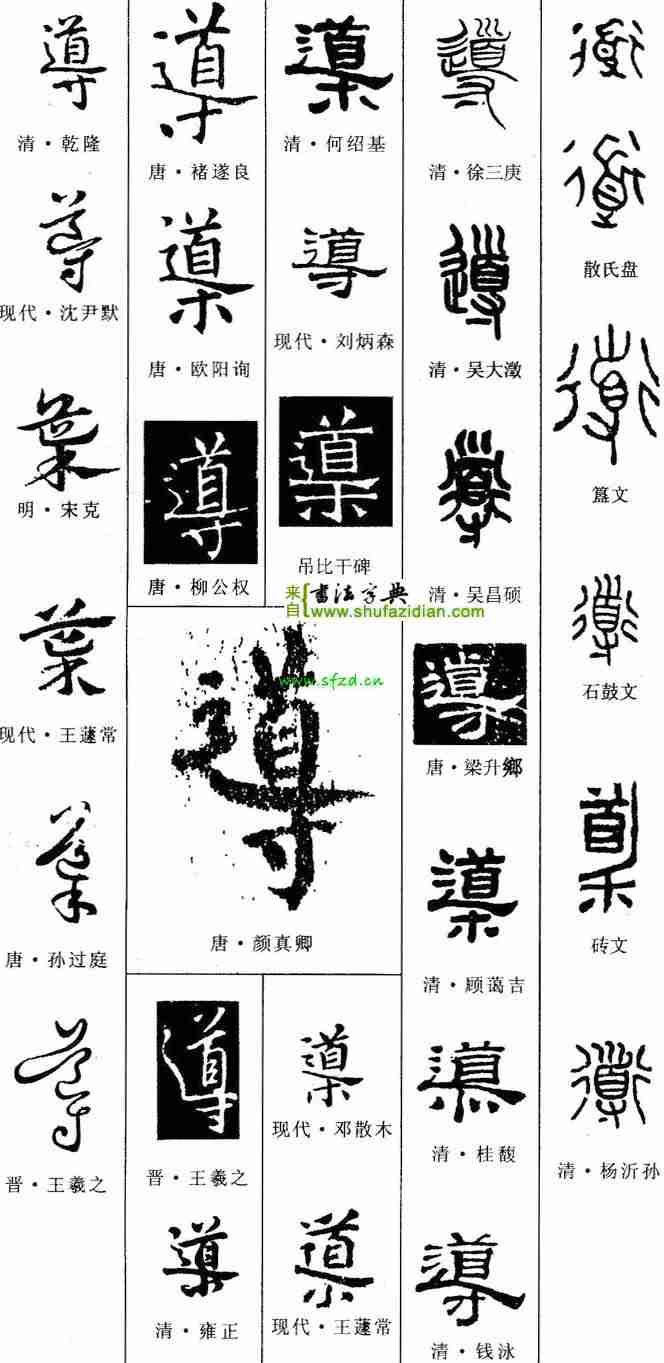 導
清·乾隆
導
现代·沈尹默
導
明·宋克
導
现代·王蘧常
導
唐·孙过庭
導
晋·王羲之
導
唐·褚遂良
導
唐·欧阳询
導
唐·柳公权
導
清·何绍基
導
现代·刘炳森
導
吊比干碑
来自
书法字典
www.shufazidian.com
導
www.sfzd.cn
唐·颜真卿
導
晋·王羲之
導
清·雍正
導
现代·邓散木
導
现代·王蘧常
導
清·徐三庚
導
清·吴大澂
導
清·吴昌硕
導
唐·梁升鄉
導
清·顾蔼吉
導
清·桂馥
導
清·钱泳
導
導
散氏盘
導
導
石鼓文
導
砖文
導
清·杨沂孙